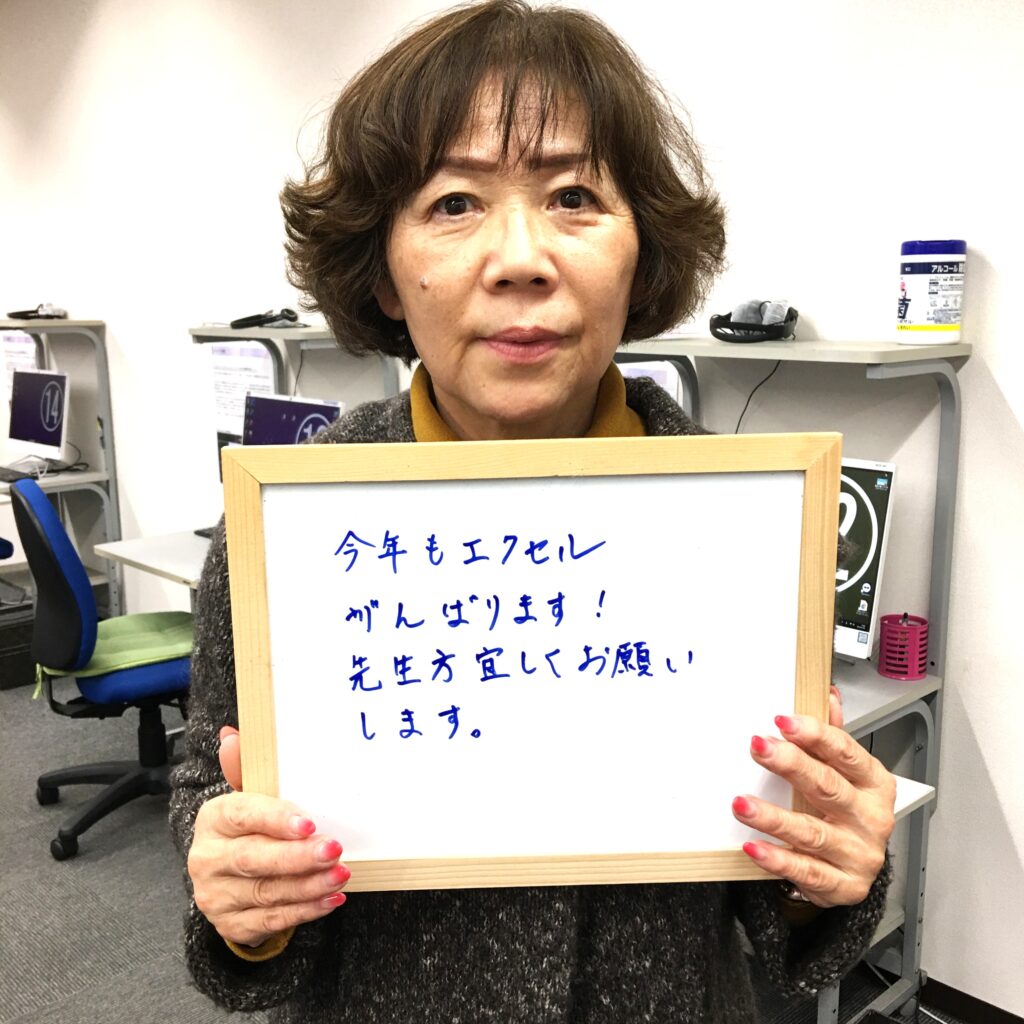 今年もエクセル
がんばります!
先生方宜しくお願い
します。
アルコール
14